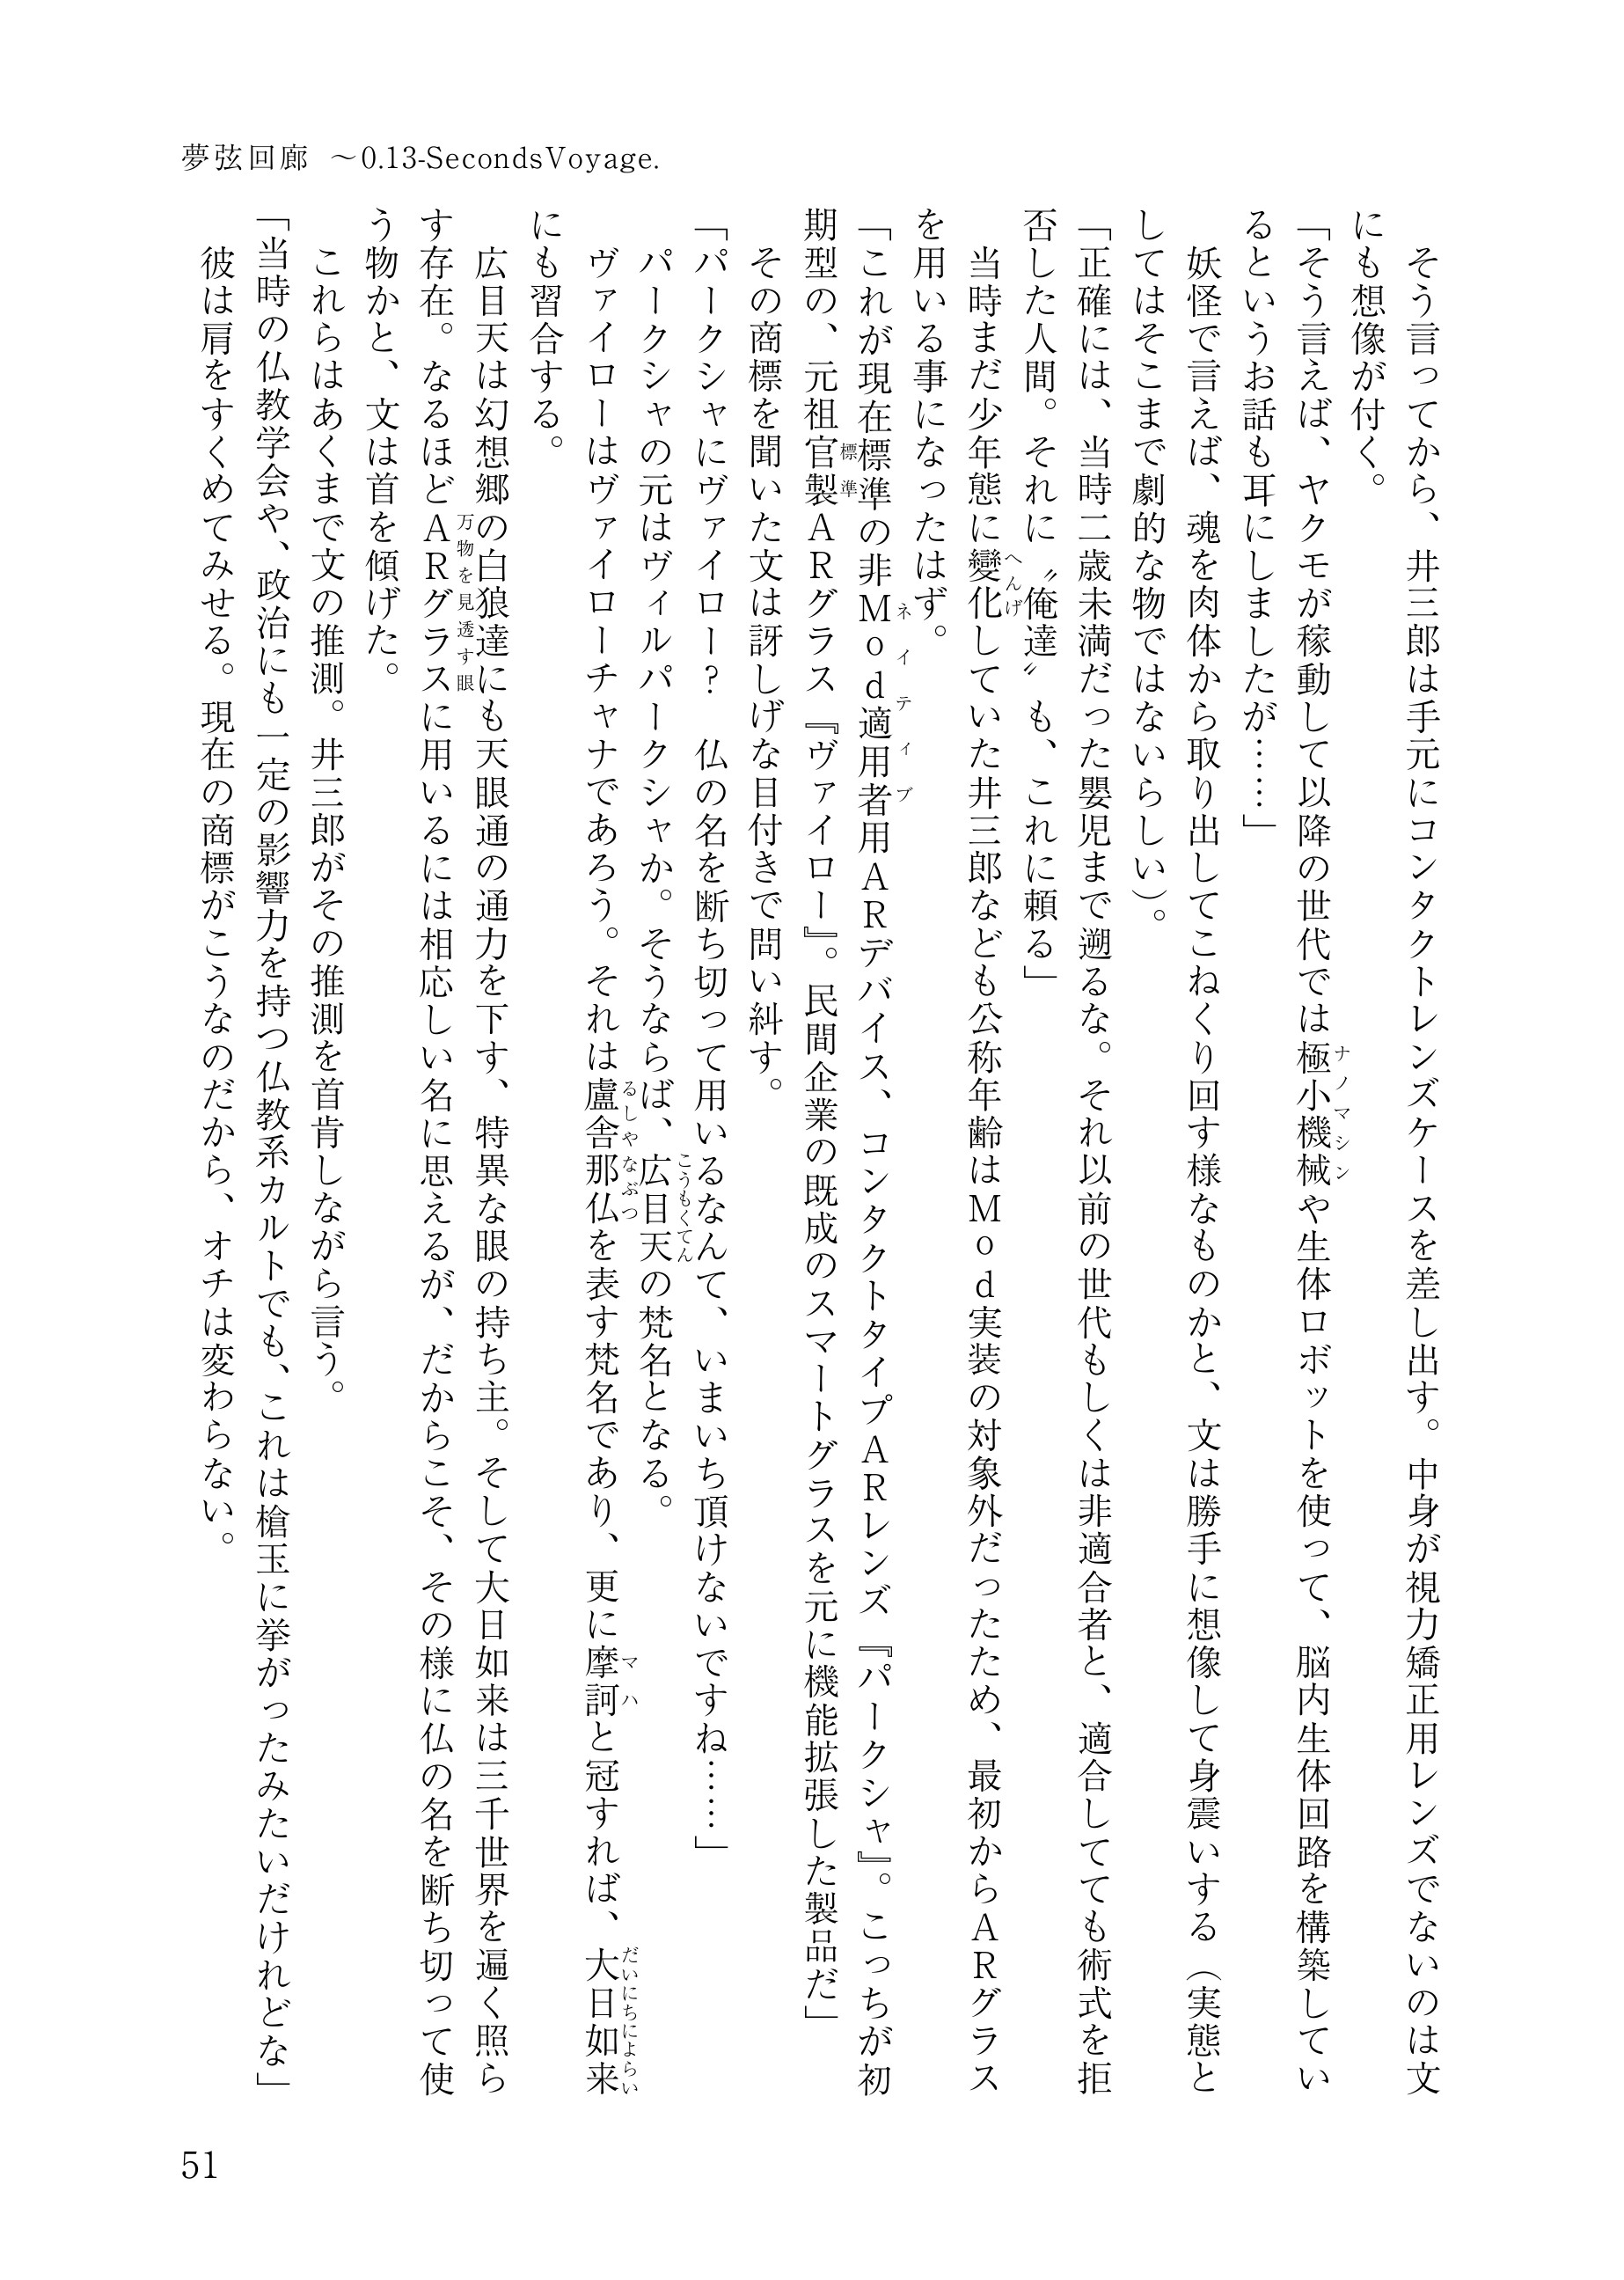 夢弦回廊　～0.13-SecondsVoyage.
　そう言ってから、井三郎は手元にコンタクトレンズケースを差し出す。中身が視力矯正用レンズでないのは文
にも想像が付く。
「そう言えば、ヤクモが稼動して以降の世代では極小機械や生体ロボットを使って、脳内生体回路を構築してい
ナノマシン
るというお話も耳にしましたが……」
　妖怪で言えば、魂を肉体から取り出してこねくり回す様なものかと、文は勝手に想像して身震いする（実態と
してはそこまで劇的な物ではないらしい）。
「正確には、当時二歳未満だった嬰児まで遡るな。それ以前の世代もしくは非適合者と、適合してても術式を拒
否した人間。それに〝俺達〟も、これに頼る」
　当時まだ少年態に變化していた井三郎なども公称年齢はＭｏｄ実装の対象外だったため、最初からＡＲグラス
へんげ
を用いる事になったはず。
「これが現在標準の非Ｍｏｄ適用者用ＡＲデバイス、コンタクトタイプＡＲレンズ『パークシャ』。こっちが初
ネイティブ
期型の、元祖官製ＡＲグラス『ヴァイロー』。民間企業の既成のスマートグラスを元に機能拡張した製品だ」
標準
　その商標を聞いた文は訝しげな目付きで問い糾す。
「パークシャにヴァイロー？　仏の名を断ち切って用いるなんて、いまいち頂けないですね……」
　パークシャの元はヴィルパークシャか。そうならば、広目天の梵名となる。
こうもくてん
　ヴァイローはヴァイローチャナであろう。それは盧舎那仏を表す梵名であり、更に摩訶と冠すれば、大日如来
るしゃなぶつ
マハ
だいにちによらい
にも習合する。
　広目天は幻想郷の白狼達にも天眼通の通力を下す、特異な眼の持ち主。そして大日如来は三千世界を遍く照ら
す存在。なるほどＡＲグラスに用いるには相応しい名に思えるが、だからこそ、その様に仏の名を断ち切って使
万物を見透す眼
う物かと、文は首を傾げた。
　これらはあくまで文の推測。井三郎がその推測を首肯しながら言う。
「当時の仏教学会や、政治にも一定の影響力を持つ仏教系カルトでも、これは槍玉に挙がったみたいだけれどな」
　彼は肩をすくめてみせる。現在の商標がこうなのだから、オチは変わらない。
51